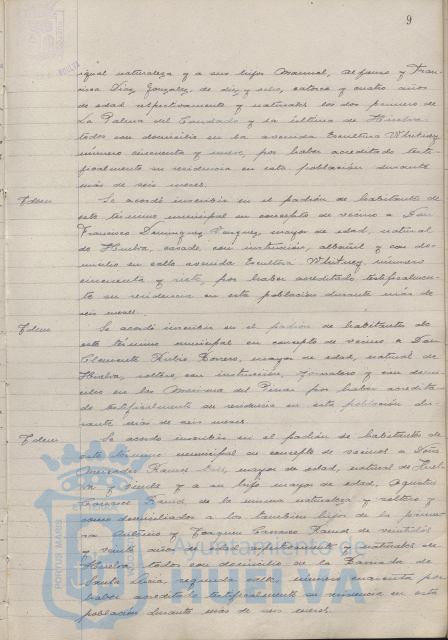 9
igual naturaleza y a sus hijos Manuel, Alfonso y Fran-
cisca Díaz González, de diez y seis, catorce y cuatro años
de edad respectivamente y naturales los dos primero de
La Palma del Condado y la última de Huelva
todos con domicilio en la avenida Escultora Whitney
número cincuenta y nueve, por haber acreditado testi-
ficalmente su residencia en esta población durante
más de seis meses.
Idem Se acordó inscribir en el padrón de habitantes de
este término municipal en concepto de vecino a Don
Francisco Dominguez Vazquez, mayor de edad, natural
de Huelva, casado, con instrucción, albañil y con do-
micilio en calle avenida Escultora Whitney, número
cincuenta y siete, por haber acreditado testificalmen-
te su residencia en esta población durante más de
seis meses.
Idem Se acordó inscribir en el padrón de habitantes de
este término municipal en concepto de vecino a Don
Clemente Rubio Borrero, mayor de edad, natural de
Huelva, soltero, con instrucción, jornalero y con domi-
cilio en las Marismas del Pinar por haber acredita-
do testificalmente su residencia en esta población du-
rante más de seis meses.
Idem Se acordó inscribir en el padrón de habitantes de
este término municipal en concepto de vecinos a Doña
Mercedes Ramos, mayor de edad, natural de Huel-
va y viuda y a su hijo mayor de edad, Agustín
Carrasco Ramos, de la misma naturaleza y soltero y
como domiciliados a los también hijos de la prime-
ra Antonio y Carrasco Ramos de veintidós
y veinte años de edad respectivamente y naturales de
Huelva todos con domicilio en la Barriada de
Santa Lucía segunda calle, número cuarenta por
haber acreditado testificalmente su residencia en esta
población durante más de seis meses.
PORTUS MARIS
Ayuntamiento de
HUELVA